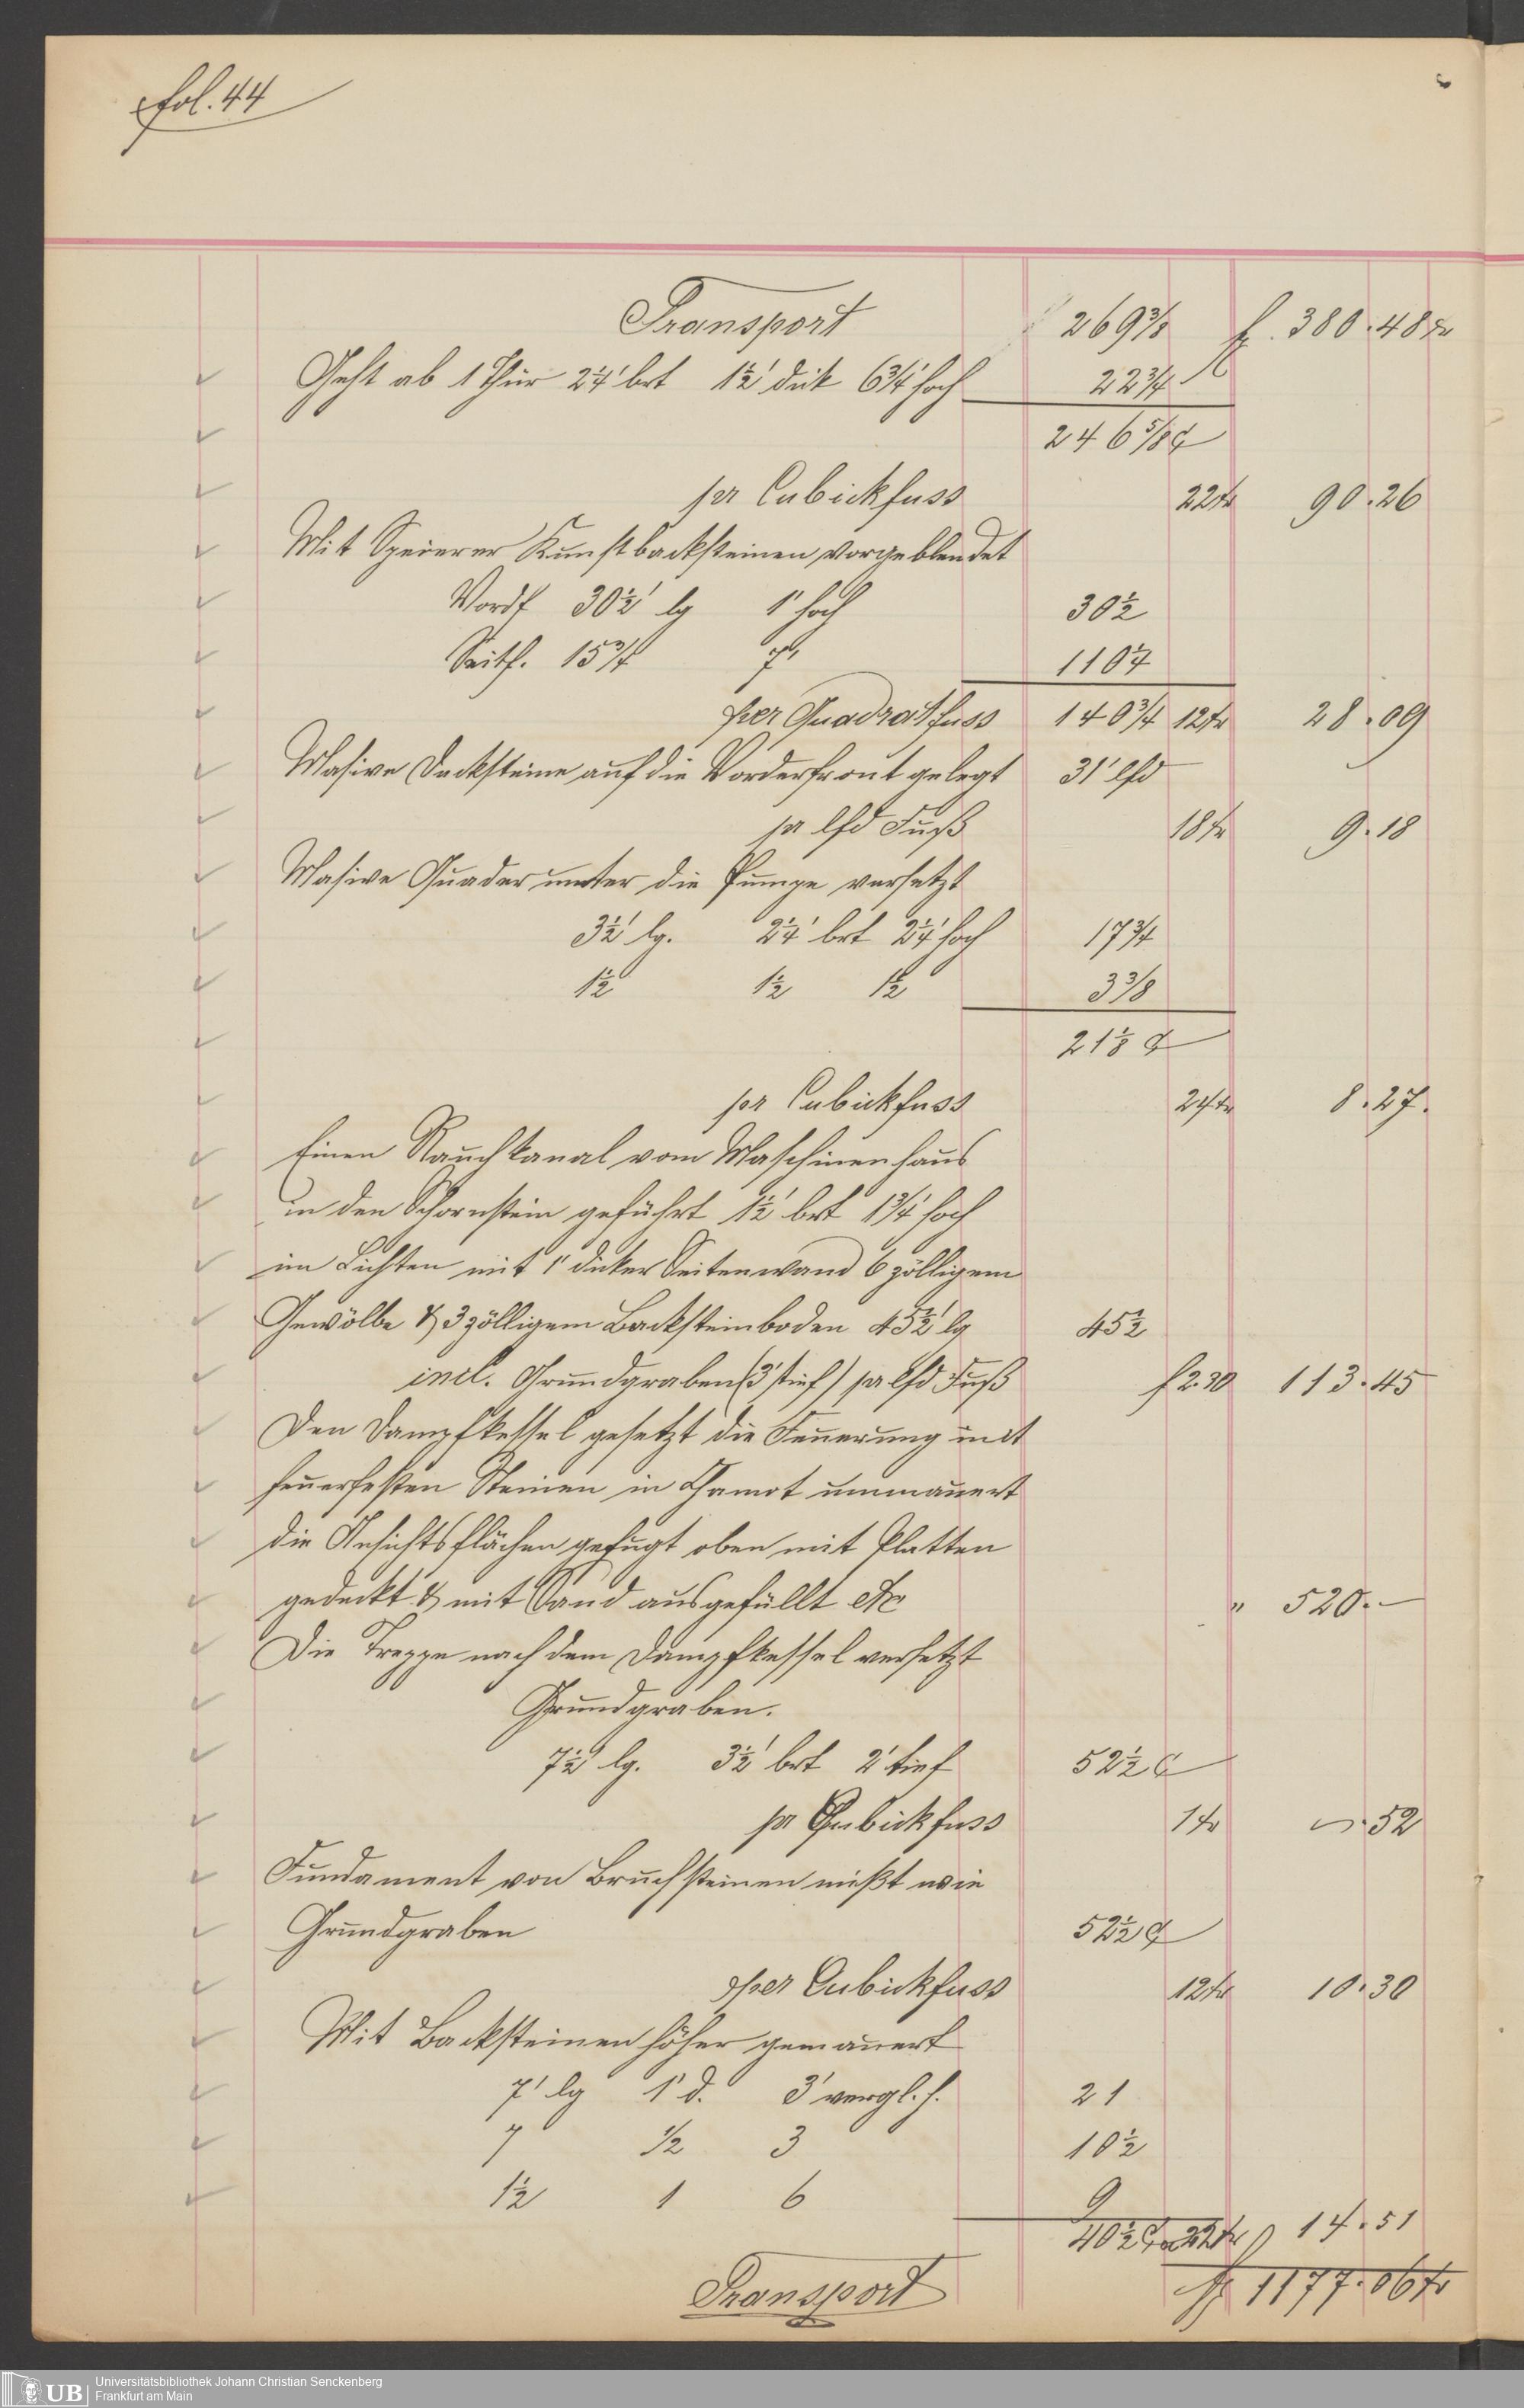 fol. 44
Transport 269 3/8 f. 380.48 kr
Geht ab 1 Thür 2 1/4' brt 1 1/2' dick 6 3/4' hoch 22 3/4
246 5/8 c'
pr Cubickfuss 22 kr 90.26
Mit Speierer Kunstbacksteinen vorgeblendet
Vordf 30 1/2' lg 1' hoch 30 1/2
Seitf. 15 3/4 7' 110 1/4
per Quadratfuss 140 3/4 12 kr 28.09
Masive Decksteine auf die Vorderfront gelegt 31' lfd
pr lfd Fuß 18 kr 9.18
Masive Quader unter die Pumpe versetzt
3 1/2' lg. 2 1/4' brt 2 1/4' hoch 17 3/4
1 1/2 1 1/2 1 1/2 3 3/8
21 1/8 c'
pr Cubickfuss 24 kr 8.27.
Einen Rauchkanal vom Maschinenhaus
in den Schornstein geführt 1 1/2' brt 1 3/4' hoch
im Lichten mit 1' dicker Seitenwand 6 zölligem
Gewölbe & 3 zölligem Backsteinboden 45 1/2' lg 45 1/2
incl. Grundgraben (3' tief) pr lfd Fuß f 2.30 113.45
Den Dampfkessel gesetzt die Feuerung mit
feuerfesten Steinen in Chamot ummauert
die Ansichtsflächen gefugt oben mit Platten
gedeckt & mit Sand ausgefüllt etc " 520.—
Die Treppe nach dem Dampfkessel versetzt
Grundgraben.
7 1/2' lg. 3 1/2' brt 2' tief 52 1/2 c'
pr Cubickfuss 1 kr —.52
Fundament von Bruchsteinen mißt wie
Grundgraben 52 1/2 c'
per Cubickfuss 12 kr 10.30
Mit Backsteinen höher gemauert
7' lg 1' d. 3' vergl. h. 21
7 1/2 3 10 1/2
1 1/2 1 6 9
40 1/2 c' a 22 kr 14.51
Transport f 1177.06 kr
UB Universitätsbibliothek Johann Christian Senckenberg
Frankfurt am Main